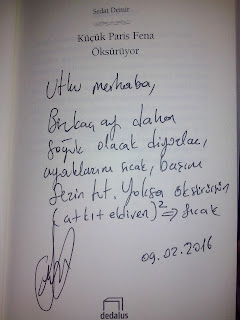 Sedat Demir
Küçük Paris Fena
Öksürüyor
Utku merhaba,
Birkaç ay daha
soğuk olacak diyorlar,
ayaklarını sıcak, başını
serin tut. Yoksa öksürürsün
(atkı+eldiven)² => sıcak
09.02.2016
dedalus